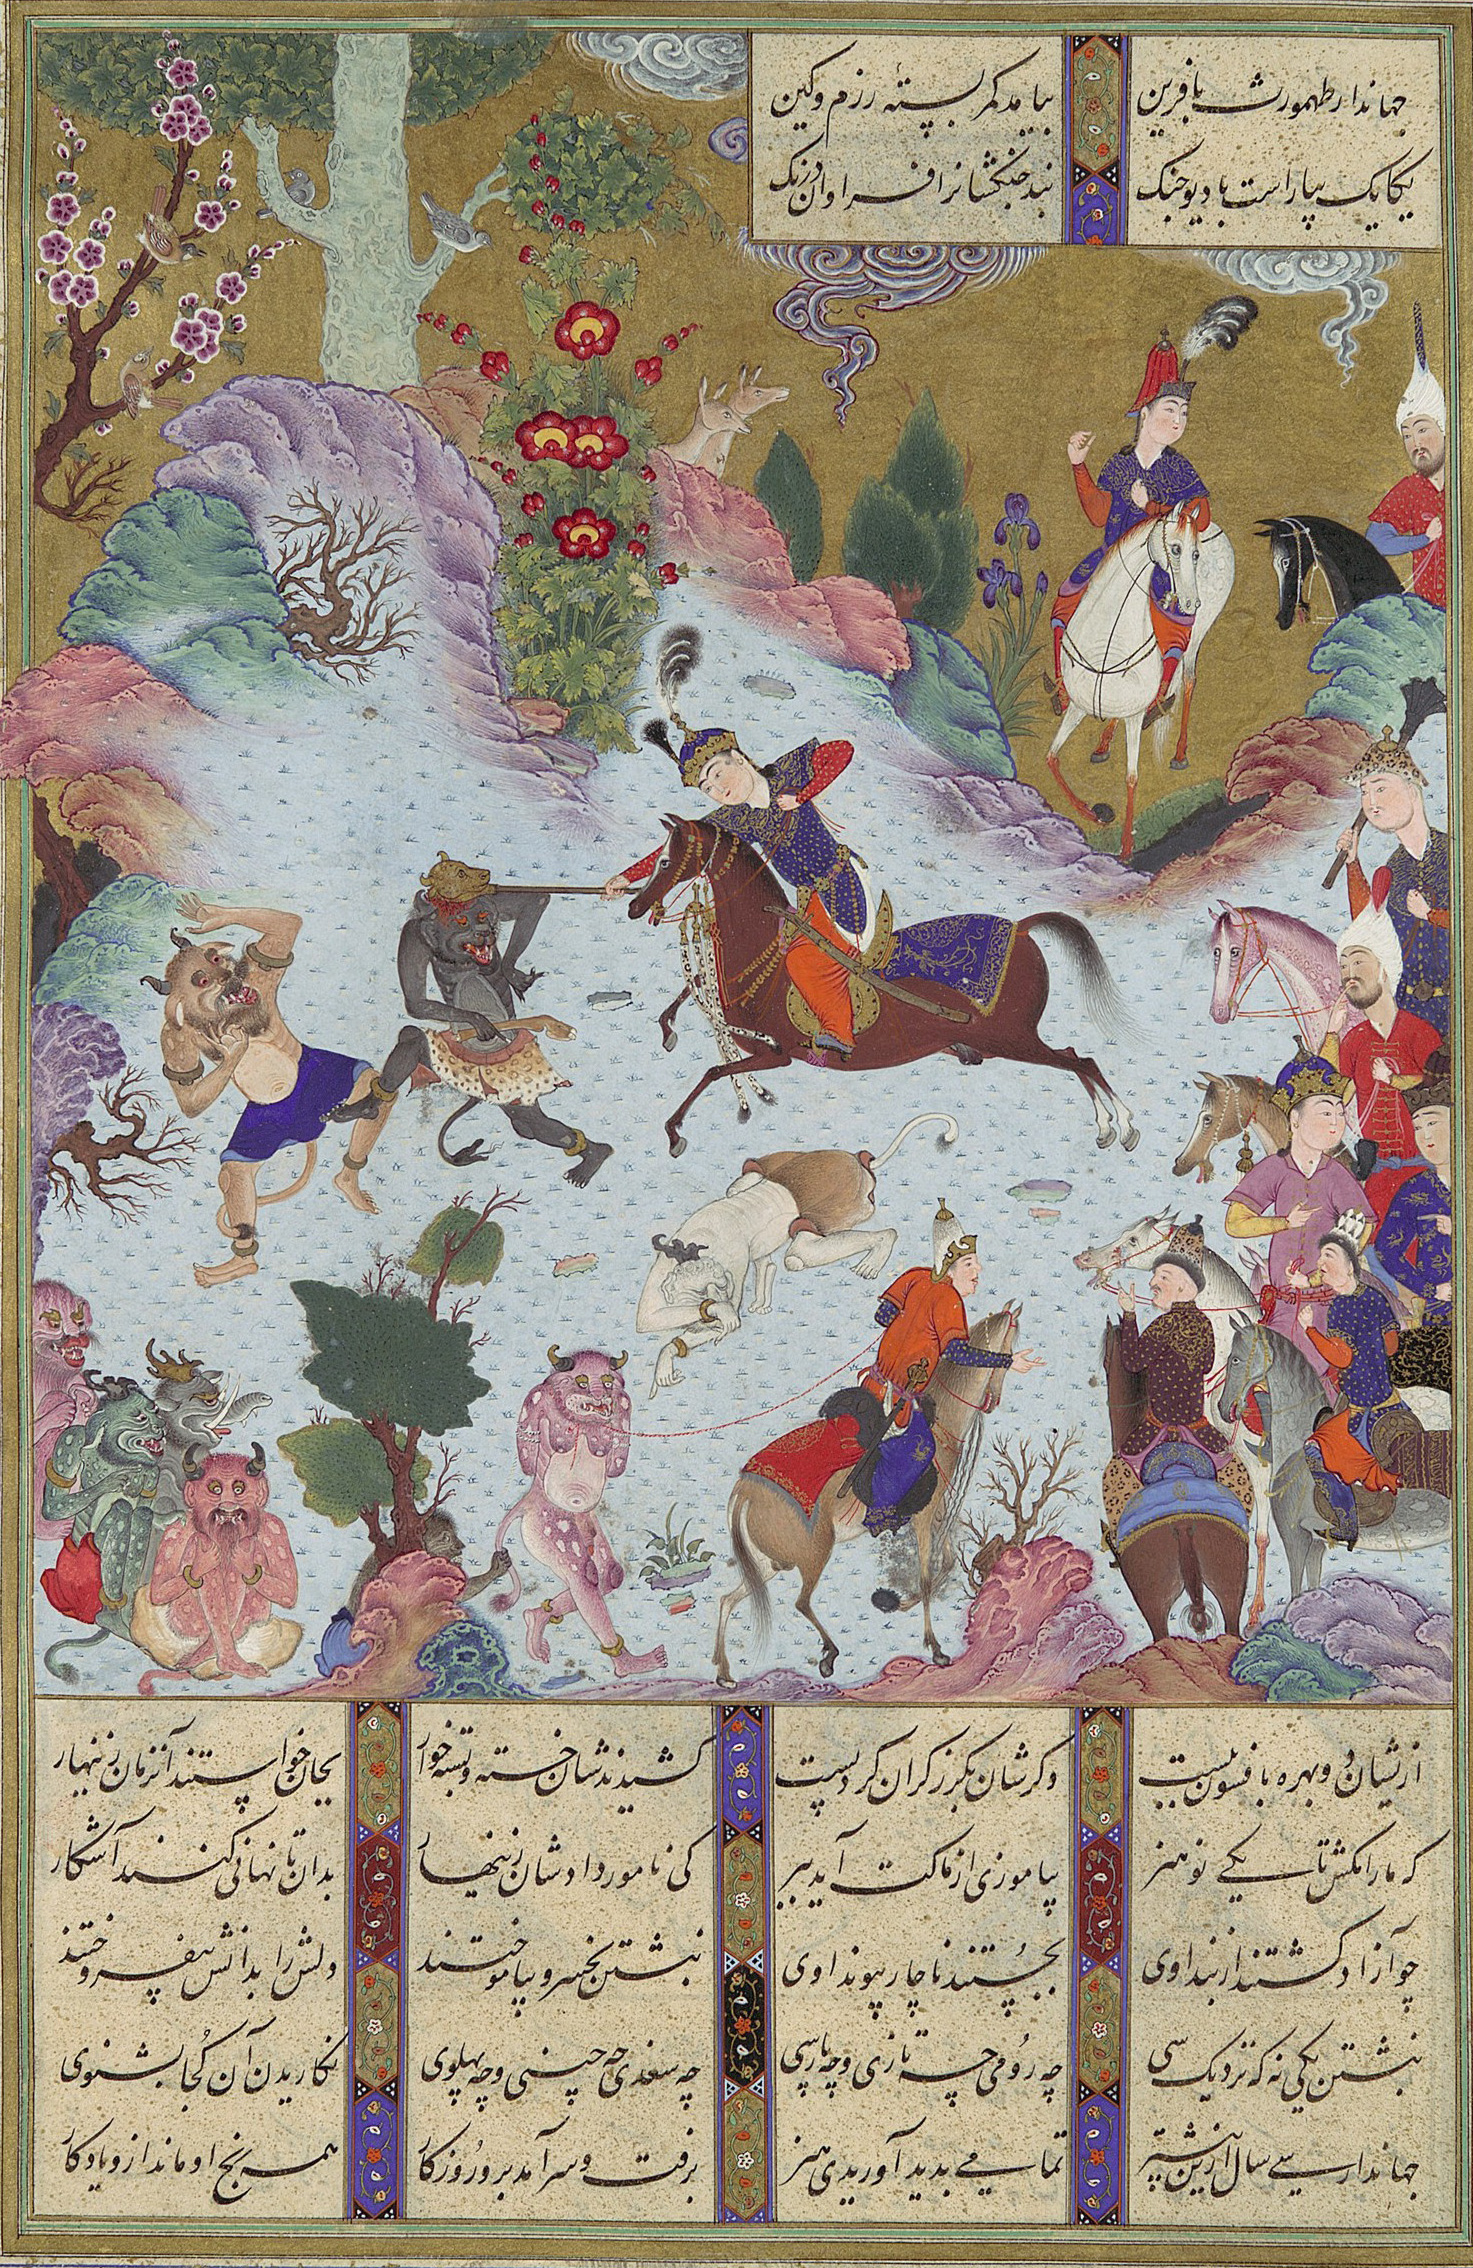 جهاندار طهمورث بافرین بیامد کمر بستهٔ رزم و کین
یکایک بیاراست با دیو جنگ نبد جنگشانرا فراوان درنگ
ازیشان دو بهره بافسون ببست دگرشان بگرز گران کرد پست کشیدندشان خسته و بسته خوار بجان خواستند آنزمان زینهار
که ما را مکش تا یکی نو هنر بیاموزی از ماکت آید ببر کی نامور دادشان زینهار بدان تا نهانی کنند آشکار
چو آزاد گشتند از بند اوی بجستند ناچار پیوند اوی نبشتن بخسرو بیاموختند دلش را بدانش بیفروختند
نبشتن یکی نه که نزدیک سی چه رومی چه تازی و چه پارسی چه سغدی چه چینی و چه پهلوی نگاریدن آن کجا بشنوی
جهاندار سی سال ازین بیشتر تمامی پدید آوریدی هنر برفت و سر آمد برو روزگار همه رنج او ماند ازو یادگار